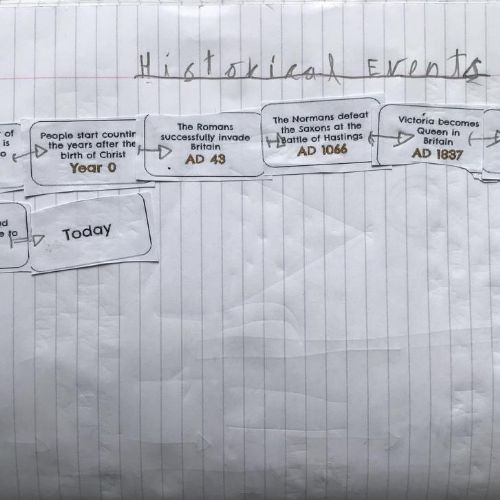 Historical Events
of
is
People start countin
the years after the
birth of Christ
Year 0
The Romans
successfully invade
Britain
AD 43
The Normans defeat
the Saxons at the
Battle of Hastings
AD 1066
Victoria becomes
Queen in
Britain
AD 1837
to
Today